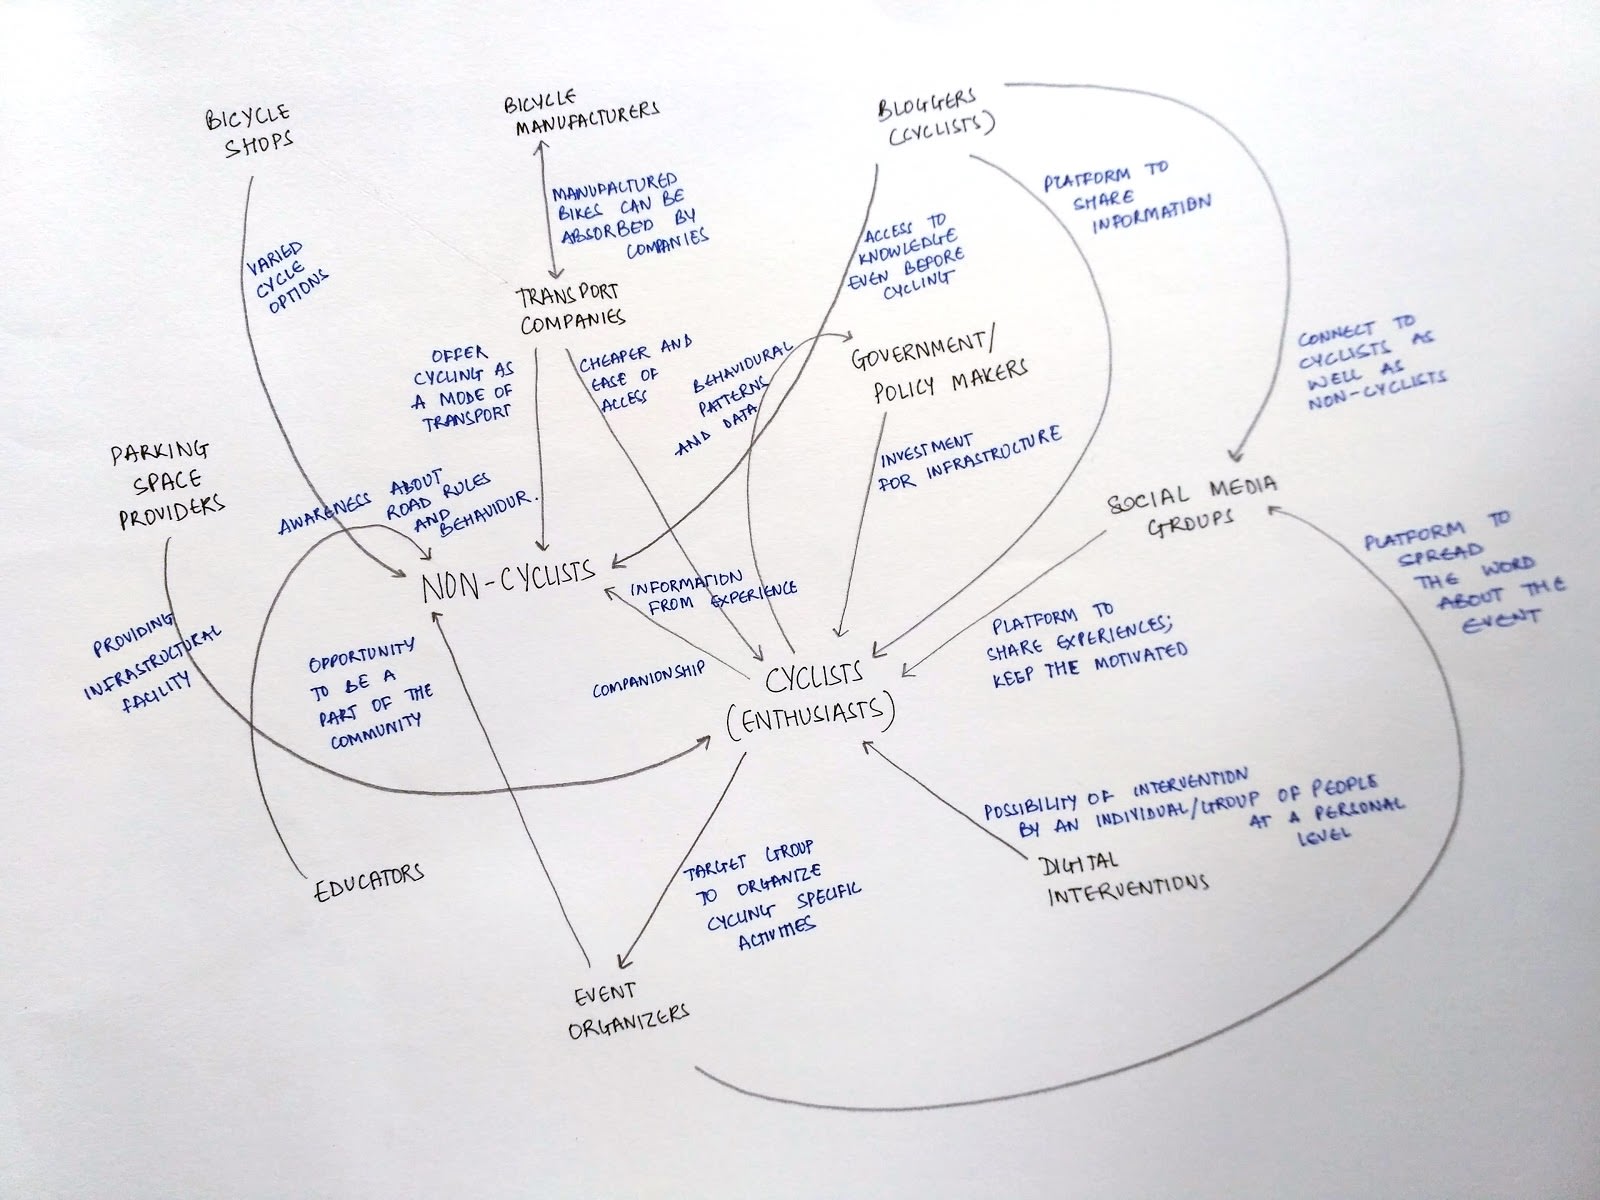 BICYCLE
SHOPS
BICYCLE
MANUFACTURERS
BLOGGERS
(CYCLISTS)
MANUFACTURED
BIKES CAN BE
ABSORBED BY
COMPANIES
PLATFORM TO
SHARE
INFORMATION
VARIED
CYCLE
OPTIONS
ACCESS TO
KNOWLEDGE
EVEN BEFORE
CYCLING
TRANSPORT
COMPANIES
OFFER
CYCLING AS
A MODE OF
TRANSPORT
CHEAPER AND
EASE OF
ACCESS
BEHAVIOURAL
PATTERNS
AND DATA
GOVERNMENT/
POLICY MAKERS
CONNECT TO
CYCLISTS AS
WELL AS
NON-CYCLISTS
PARKING
SPACE
PROVIDERS
AWARENESS ABOUT
ROAD RULES
AND
BEHAVIOUR.
INVESTMENT
FOR INFRASTRUCTURE
SOCIAL MEDIA
GROUPS
PLATFORM TO
SPREAD
THE WORD
ABOUT THE
EVENT
NON-CYCLISTS
INFORMATION
FROM EXPERIENCE
PROVIDING
INFRASTRUCTURAL
FACILITY
OPPORTUNITY
TO BE A
PART OF THE
COMMUNITY
COMPANIONSHIP
CYCLISTS
(ENTHUSIASTS)
PLATFORM TO
SHARE EXPERIENCES;
KEEP THE MOTIVATED
POSSIBILITY OF INTERVENTION
BY AN INDIVIDUAL/GROUP OF PEOPLE
AT A PERSONAL
LEVEL
DIGITAL
INTERVENTIONS
EDUCATORS
TARGET GROUP
TO ORGANIZE
CYCLING SPECIFIC
ACTIVITIES
EVENT
ORGANIZERS